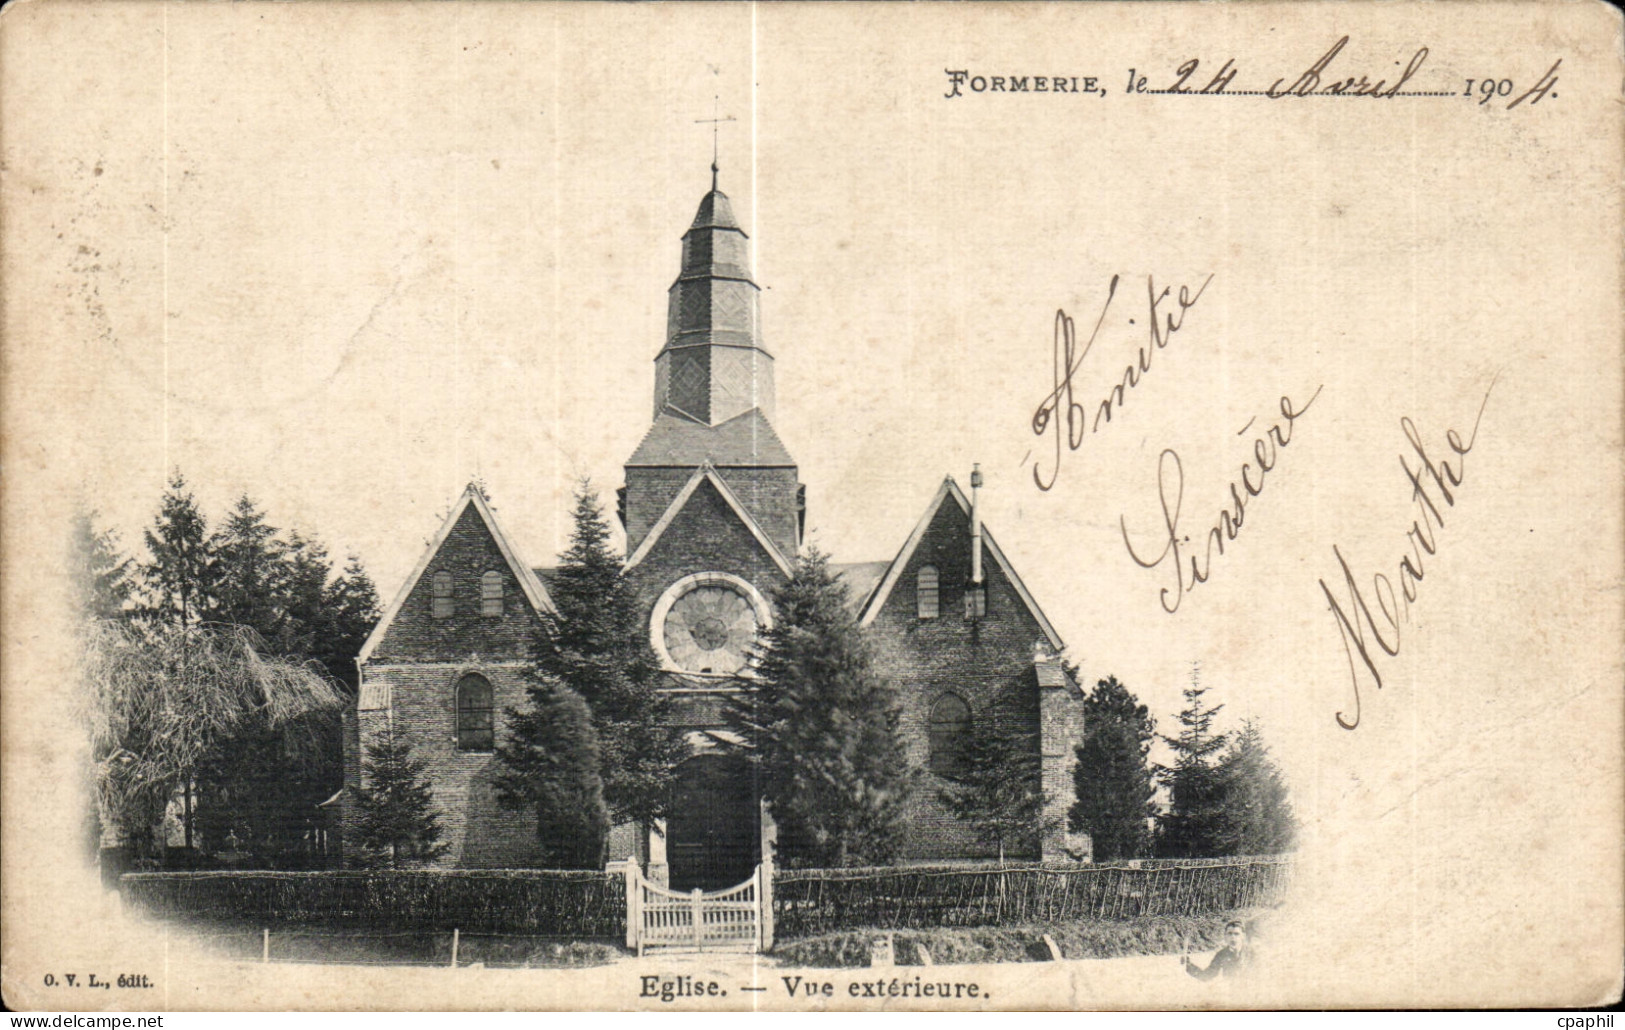 FORMERIE, le 24 Avril 1904.
Amitié
Sinscére
Marthe
O. V. L., édit.
Eglise. — Vue extérieure.
www.delcampe.net
cpaphil